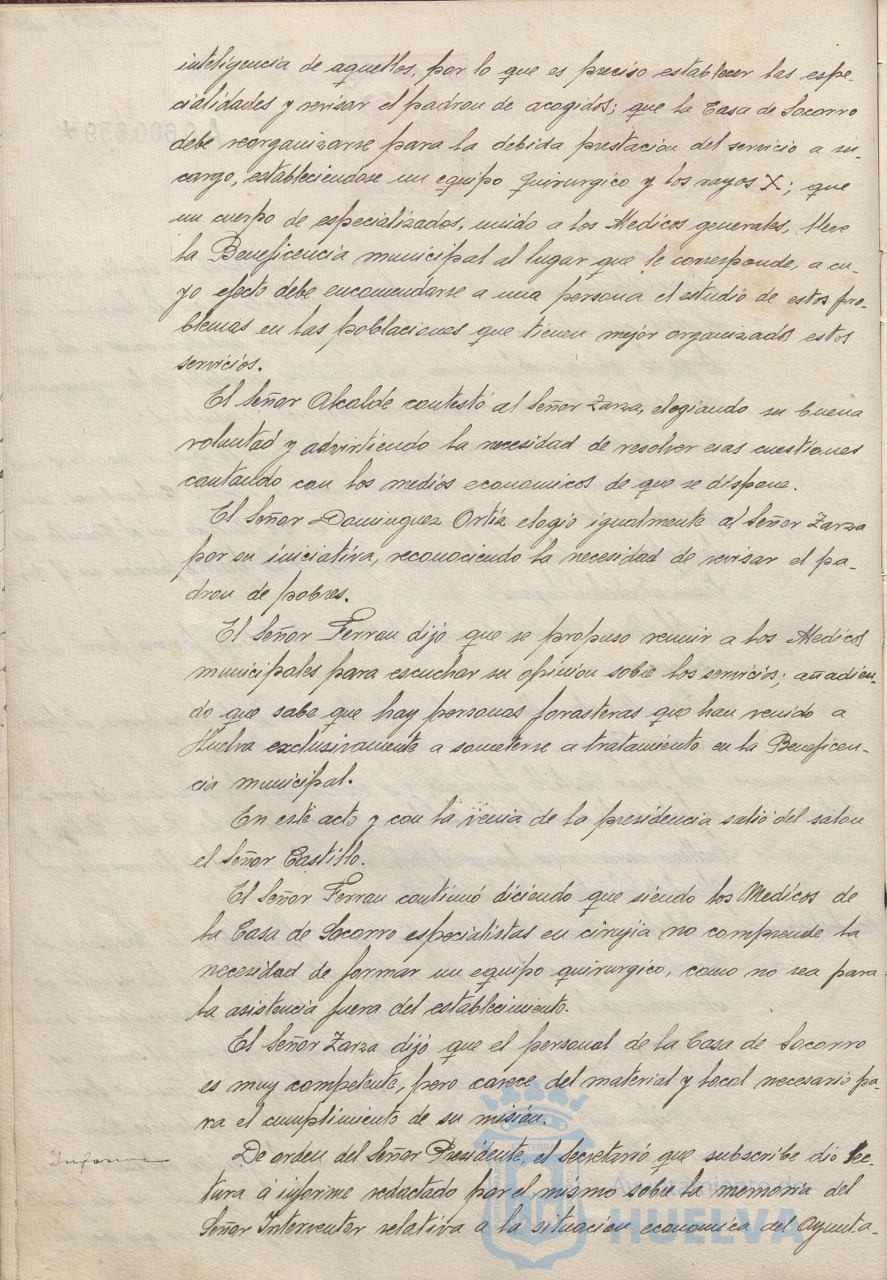 inteligencia de aquellos, por lo que es preciso establecer las espe-
cialidades y revisar el padron de acogidos; que la Casa de Socorro
debe reorganizarse para la debida prestacion del servicio a su
cargo, estableciendose un equipo quirurgico y los rayos X; que
un cuerpo de especializados, unido a los Medicos generales, lleve
la Beneficencia municipal al lugar que le corresponde, a cu-
yo efecto debe encomendarse a una persona el estudio de estos pro-
blemas en las poblaciones que tienen mejor organizados estos
servicios.
El Señor Alcalde contestó al Señor Zarza, elogiando su buena
voluntad y advirtiendo la necesidad de resolver esas cuestiones
contando con los medios economicos de que se dispone.
El Señor Dominguez Ortiz elogió igualmente al Señor Zarza
por su iniciativa, reconociendo la necesidad de revisar el pa-
dron de pobres.
El Señor Ferrau dijó que se propuso reunir a los Medicos
municipales para escuchar su opinion sobre los servicios; añadien-
do que sabe que hay personas forasteras que han venido a
Huelva exclusivamente a someterse a tratamiento en la Beneficen-
cia municipal.
En este acto y con la venia de la presidencia salió del salon
el Señor Castillo.
El Señor Ferrau continuó diciendo que siendo los Medicos de
la Casa de Socorro especialistas en cirujía no comprende la
necesidad de formar un equipo quirurgico, como no sea para
la asistencia fuera del establecimiento.
El Señor Zarza dijó que el personal de la Casa de Socorro
es muy competente, pero carece del material y local necesario pa-
ra el cumplimiento de su misión.
Informe
De orden del Señor Presidente, el Secretario que subscribe dió lec-
tura á informe redactado por el mismo sobre la memoria del
Señor Interventor relativa a la situacion economica del Ayunta-
HUELVA